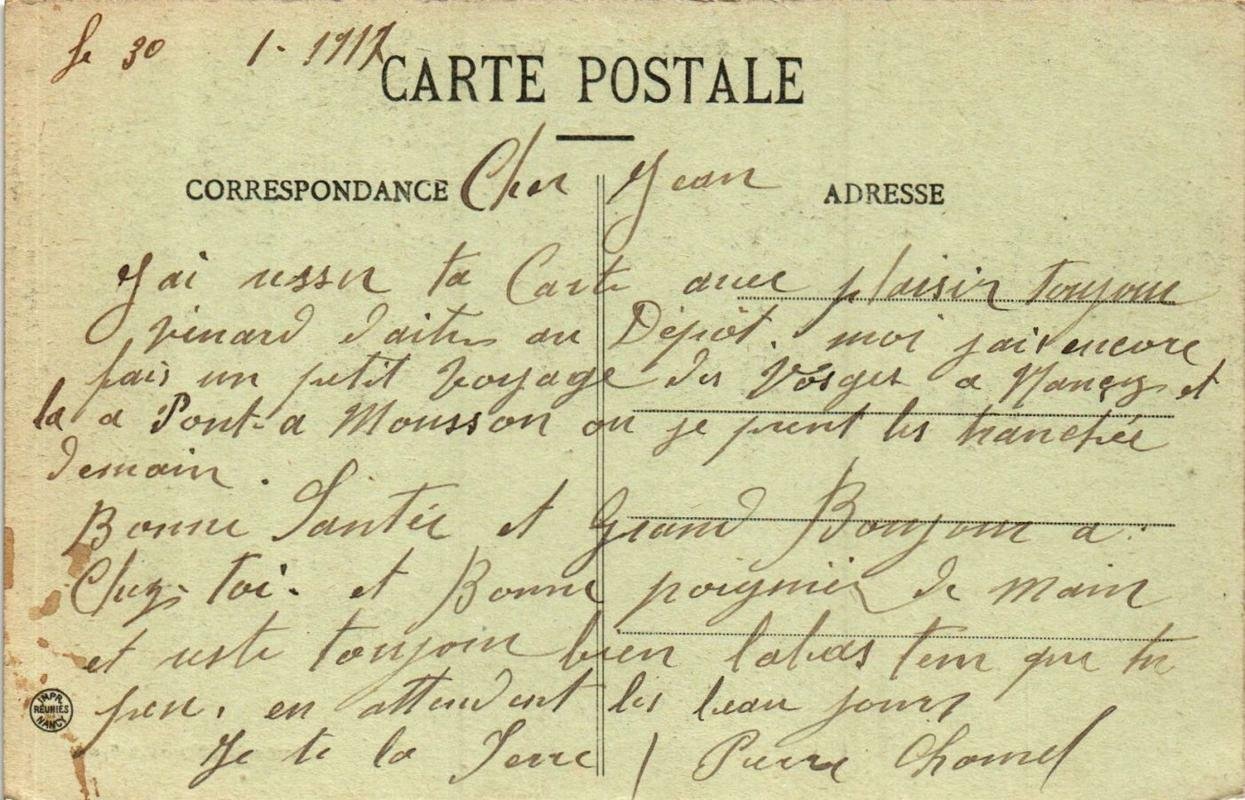 le 30 1-1917
CARTE POSTALE
CORRESPONDANCE Cher Jean ADRESSE
J'ai ressu ta Carte avec plaisir toujour
vėinard daitre au Dépôt. moi jais encore
fais un petit voyage des Vosges a Nancy et
la a Pont-a Mousson ou je prent les tranchée
demain.
Bonne Santée et Grand Bonjour a
Chez toi. et Bonne poignier de main
et reste toujour bien labas tem que tu
peu, en attendent les beau jours
Je te la Serre Pierre Chomel
IMPR.
RÉUNIES
NANCY